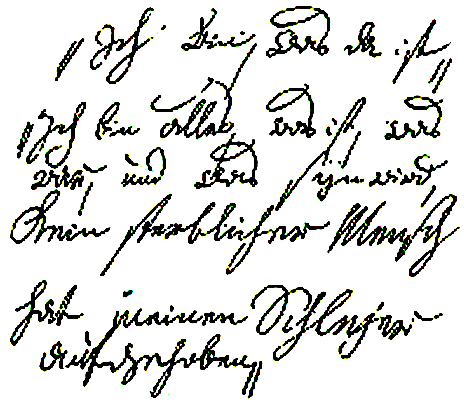 „Ich bin, Was da ist„
„Ich bin alles, was ist, was
war, und was seyn wird,
Kein sterblicher Mensch
hat meinen Schleyer
aufgehoben„